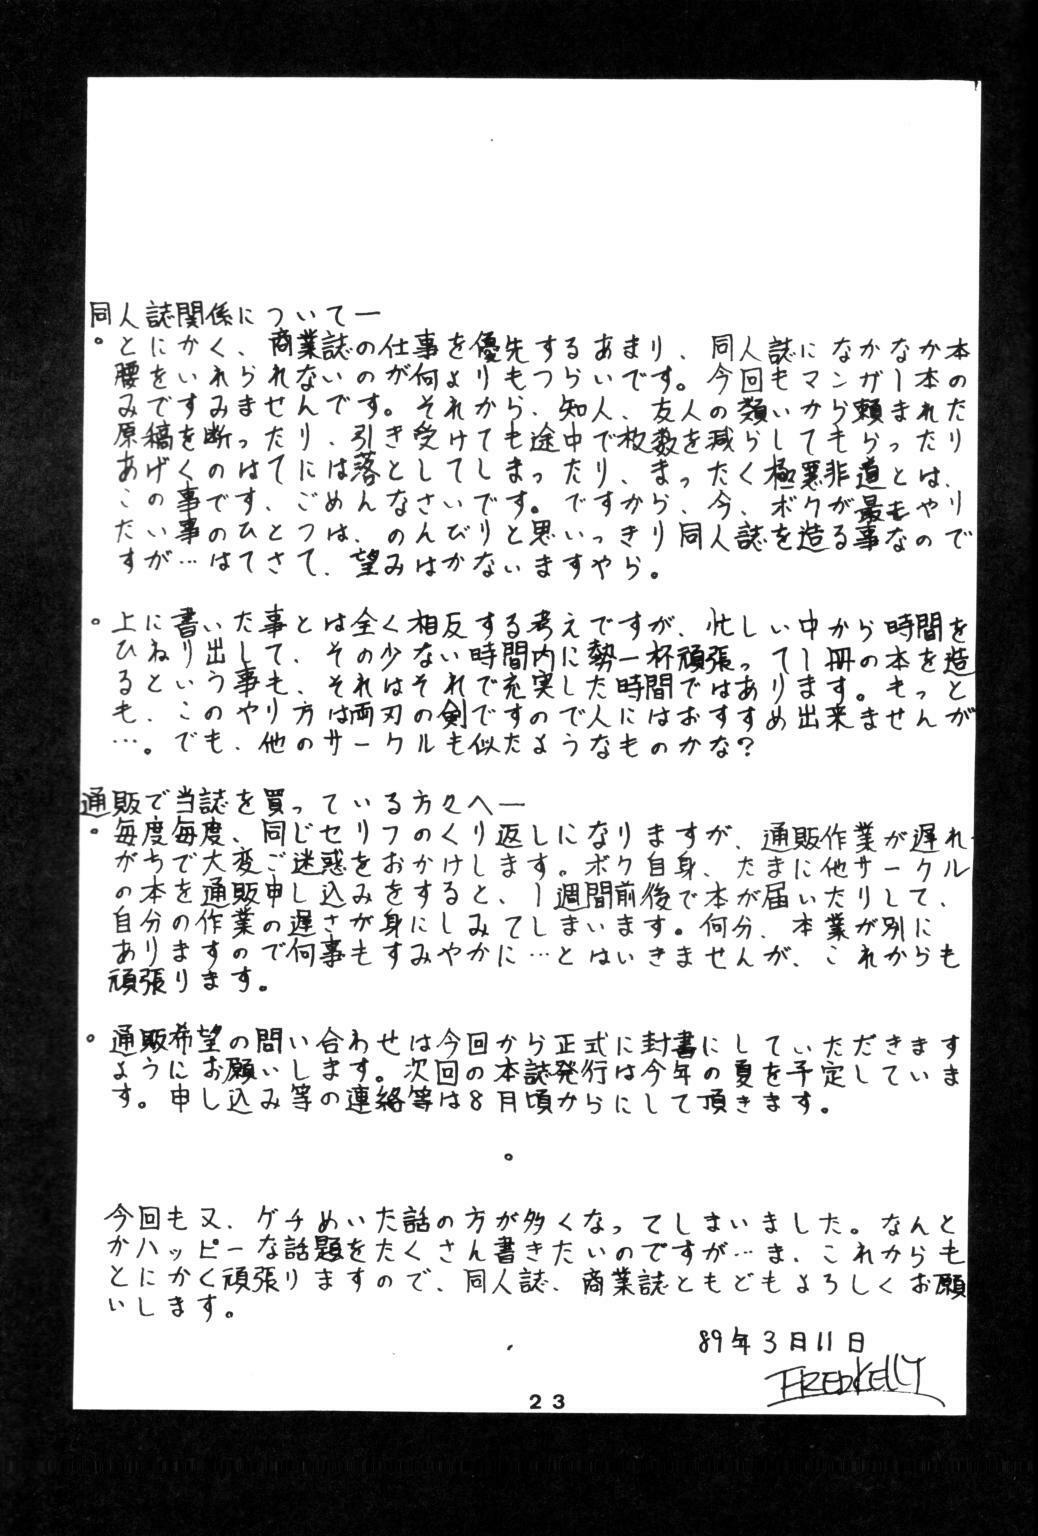 同人誌関係について―
。とにかく、商業誌の仕事を優先するあまり、同人誌になかなか本
腰をいれられないのが何よりもつらいです。今回もマンガ1本の
みですみませんです。それから、知人、友人の類いから頼まれた
原稿を断ったり、引き受けても途中で枚数を減らしてもらったり
あげくのはてには落としてしまったり、まったく極悪非道とは、
この事です、ごめんなさいです。ですから、今、ボクが最もやり
たい事のひとつは、のんびりと思いっきり同人誌を造る事なので
すが…はてさて、望みはかないますやら。
。上に書いた事とは全く相反する考えですが、忙しい中から時間を
ひねり出して、その少ない時間内に勢一杯頑張って1冊の本を造
るという事も、それはそれで充実した時間ではあります。もっと
も、このやり方は両刃の剣ですので人にはおすすめ出来ませんが
…。でも、他のサークルも似たようなものかな?
通販で当誌を買っている方々へ―
。毎度毎度、同じセリフのくり返しになりますが、通販作業が遅れ
がちで大変ご迷惑をおかけします。ボク自身、たまに他サークル
の本を通販申し込みをすると、1週間前後で本が届いたりして、
自分の作業の遅さが身にしみてしまいます。何分、本業が別に
ありますので何事もすみやかに…とはいきませんが、これからも
頑張ります。
。通販希望の問い合わせは今回から正式に封書にしていただきます
ようにお願いします。次回の本誌発行は今年の夏を予定していま
す。申し込み等の連絡等は8月頃からにして頂きます。
。
今回も又、ゲチめいた話の方が多くなってしまいました。なんと
かハッピーな話題をたくさん書きたいのですが…ま、これからも
とにかく頑張りますので、同人誌、商業誌ともどもよろしくお願
いします。
89年3月11日
FREDKELLY
23